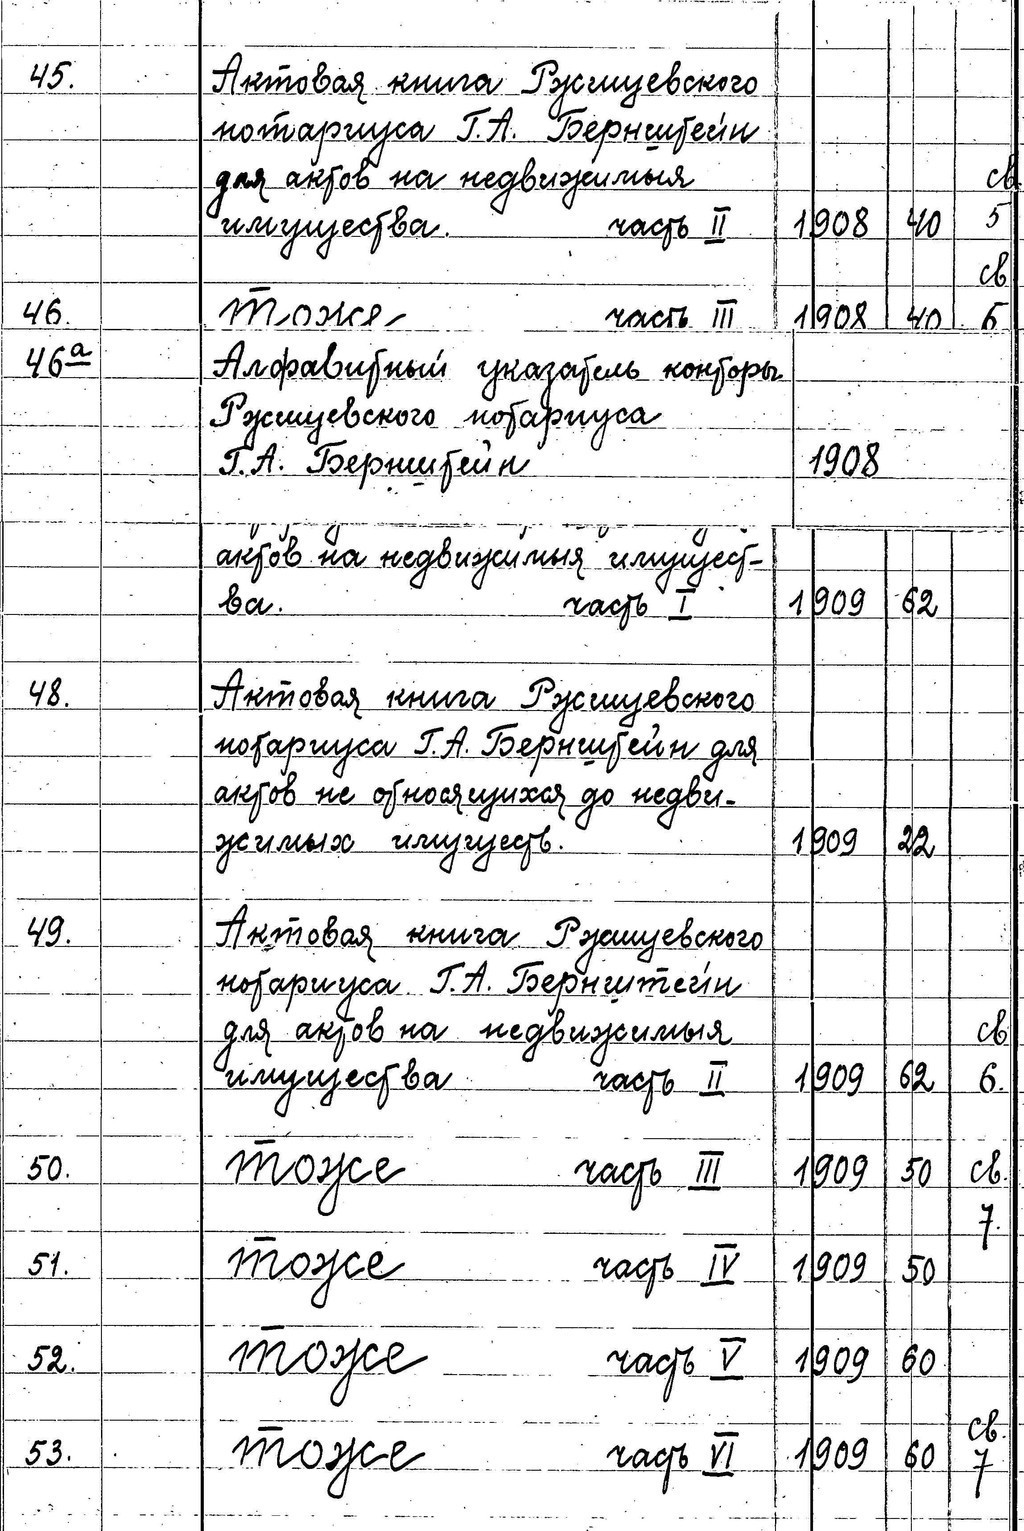 45. Актовая книга Русиуевского
нотариуса Г.А. Бернштейн
для актов на недвижимыя св
имущества. часть II 1908 40 5
св
46. Тоже часть III 1908 40 6
46а Алфавитный указатель конторы
Русиуевского нотариуса
Г.А. Бернштейн 1908
актов на недвижимыя имущест-
ва. часть I 1909 62
48. Актовая книга Русиуевского
нотариуса Г.А. Бернштейн для
актов не относящихся до недви-
жимых имуществ. 1909 22
49. Актовая книга Русиуевского
нотариуса Г.А. Бернштейн
для актов на недвижимыя св
имущества часть II 1909 62 6.
50. Тоже часть III 1909 50 св.
7.
51. Тоже часть IV 1909 50
52. Тоже часть V 1909 60
св.
53. Тоже часть VI 1909 60 7